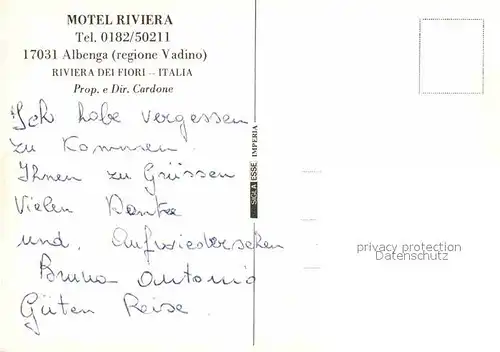 MOTEL RIVIERA
Tel. 0182/50211
17031 Albenga (regione Vadino)
RIVIERA DEI FIORI -- ITALIA
Prop. e Dir. Cardone
Ich habe vergessen
zu Kommen
Ihnen zu Grüssen
Vielen Danke
und. Aufwiedersehen
Bruna Antonio
Güten Reise.
SIGLA ESSE IMPERIA
privacy protection
Datenschutz